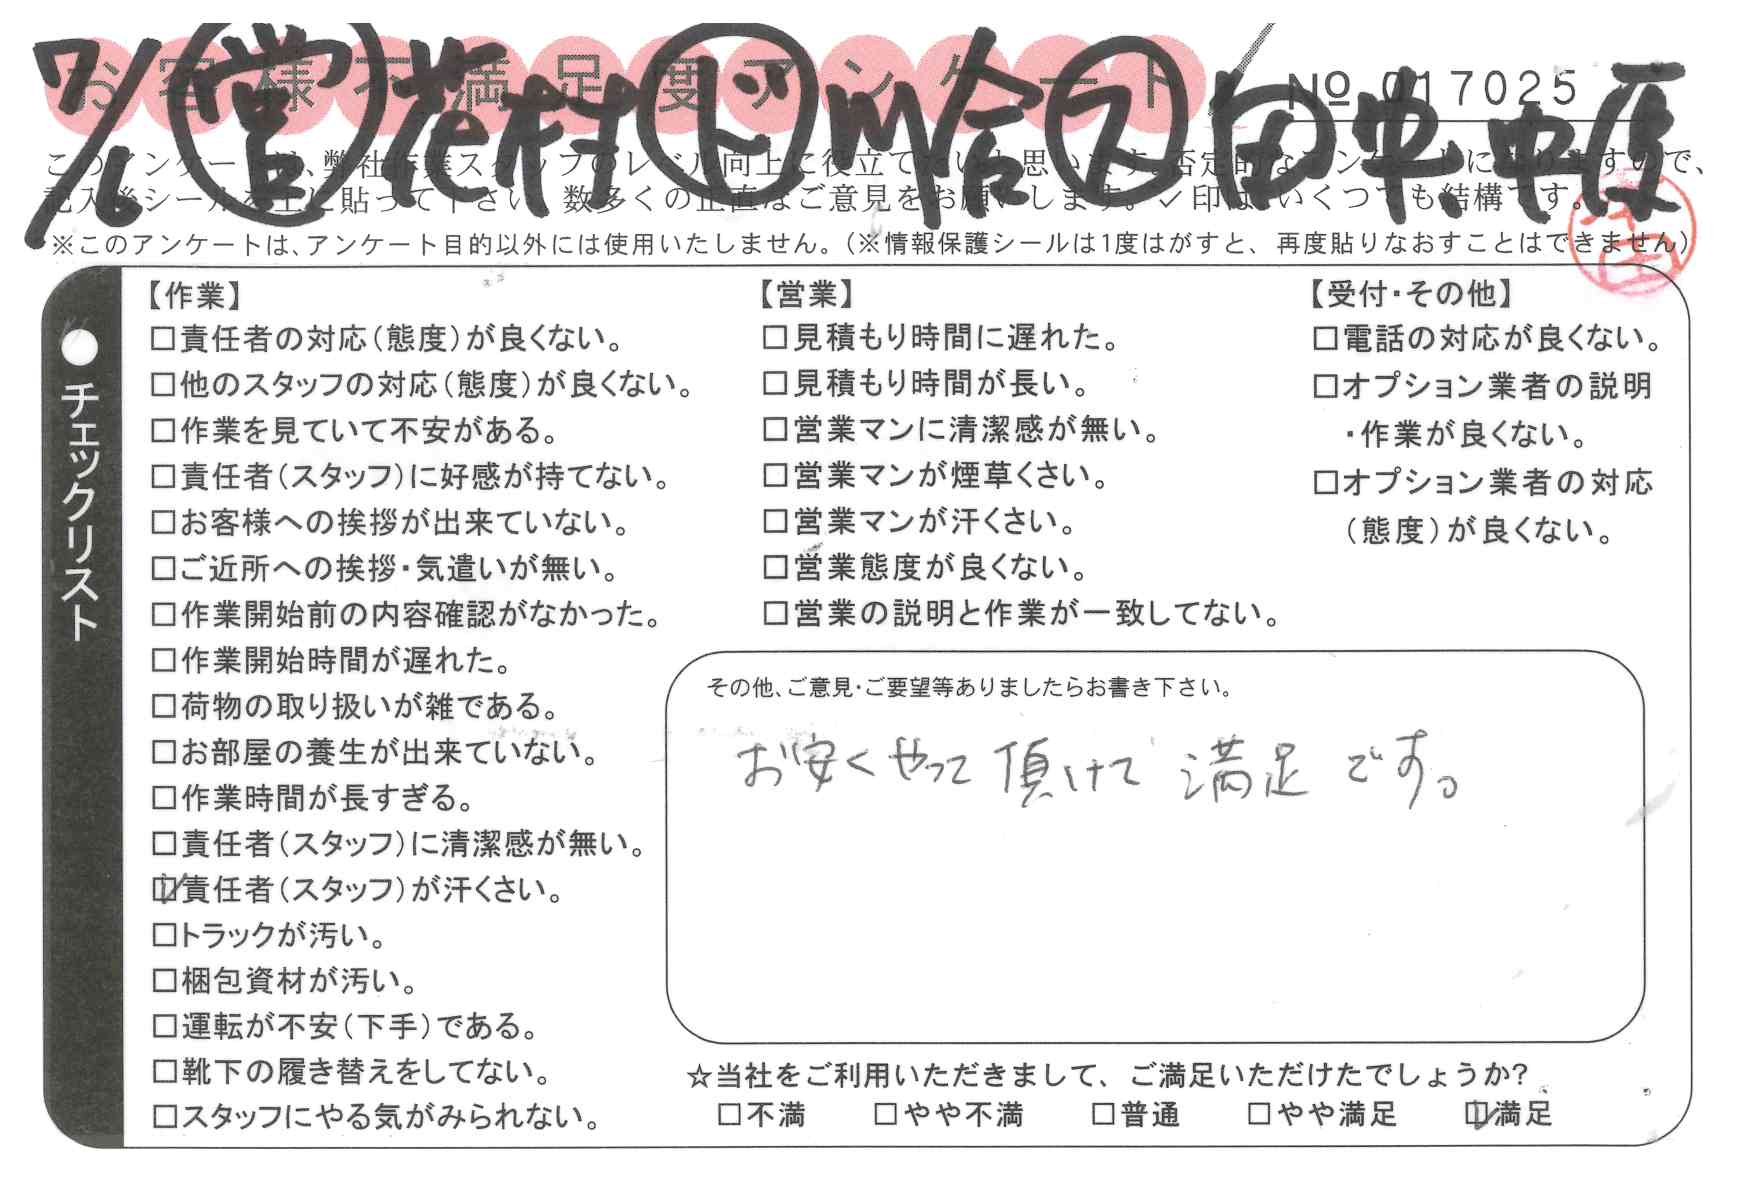 お客様不満足度アンケート
7/6 営 花村 ド 川合 ス 田中 中原
No 017025
このアンケートは、弊社作業スタッフのレベル向上に役立てたいと思います。否定的なアンケートになりますので、
記入後シールを上に貼って下さい。数多くの正直なご意見をお願いします。✓印は、いくつでも結構です。
※このアンケートは、アンケート目的以外には使用いたしません。(※情報保護シールは1度はがすと、再度貼りなおすことはできません)
●チェックリスト
【作業】
□責任者の対応(態度)が良くない。
□他のスタッフの対応(態度)が良くない。
□作業を見ていて不安がある。
□責任者(スタッフ)に好感が持てない。
□お客様への挨拶が出来ていない。
□ご近所への挨拶・気遣いが無い。
□作業開始前の内容確認がなかった。
□作業開始時間が遅れた。
□荷物の取り扱いが雑である。
□お部屋の養生が出来ていない。
□作業時間が長すぎる。
□責任者(スタッフ)に清潔感が無い。
☑責任者(スタッフ)が汗くさい。
□トラックが汚い。
□梱包資材が汚い。
□運転が不安(下手)である。
□靴下の履き替えをしてない。
□スタッフにやる気がみられない。
【営業】
□見積もり時間に遅れた。
□見積もり時間が長い。
□営業マンに清潔感が無い。
□営業マンが煙草くさい。
□営業マンが汗くさい。
□営業態度が良くない。
□営業の説明と作業が一致してない。
【受付・その他】
□電話の対応が良くない。
□オプション業者の説明
・作業が良くない。
□オプション業者の対応
(態度)が良くない。
その他、ご意見・ご要望等ありましたらお書き下さい。
お安くやって頂けて満足です。
☆当社をご利用いただきまして、ご満足いただけたでしょうか?
□不満 □やや不満 □普通 □やや満足 ☑満足